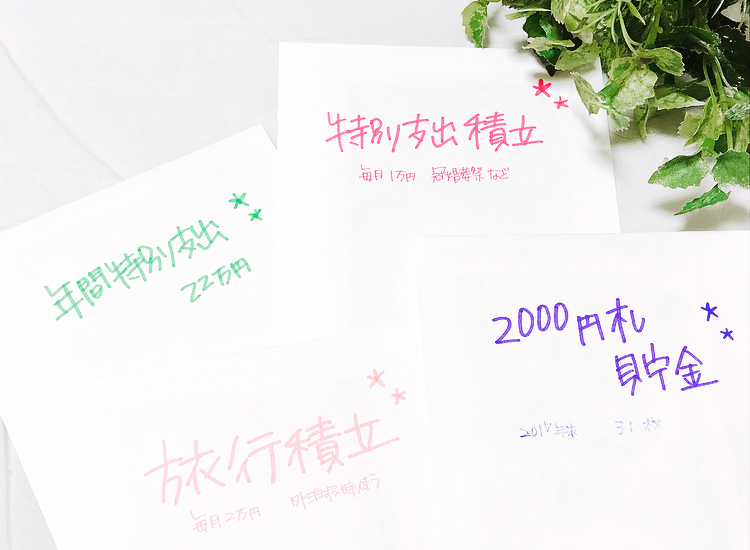 特別支出積立
毎月1万円 冠婚葬祭など
年間特別支出
22万円
2000円札
貯金
2017年末 31枚
旅行積立
毎月2万円